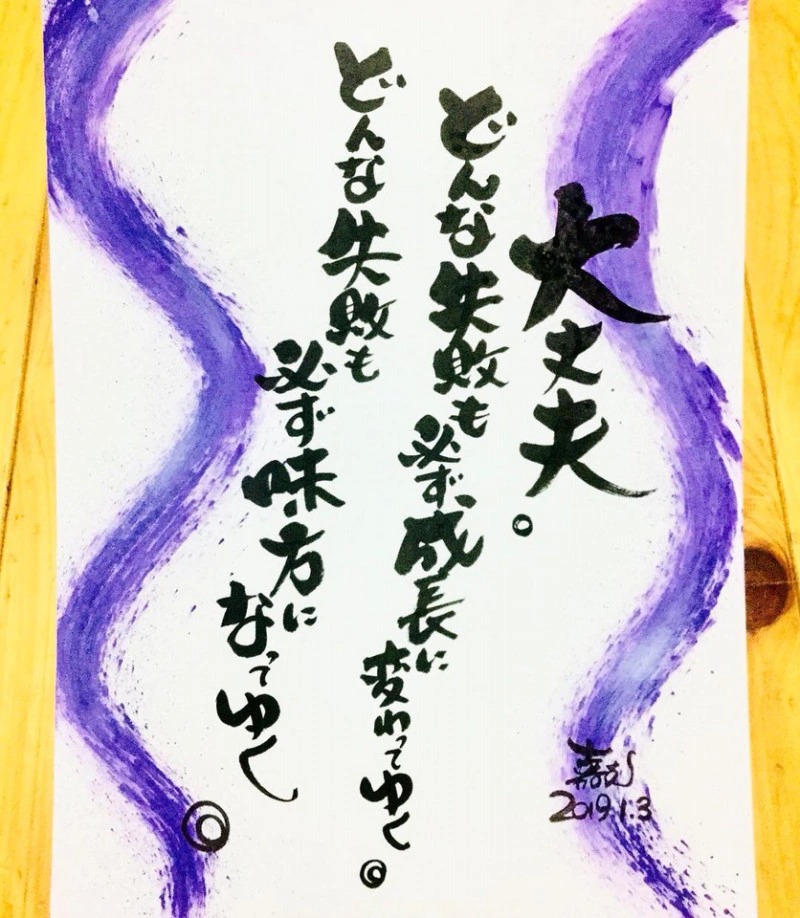 大丈夫。
どんな失敗も必ず成長に変わってゆく。
どんな失敗も必ず味方になってゆく。
2019.1.3